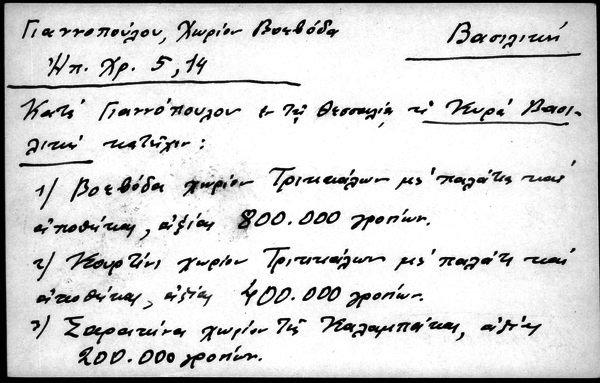 Γιαννοπούλου, Χωρίον Βοεβόδα
Βασιλική
Ηπ. Χρ. 5, 14
Κατά Γιαννόπουλον εν τη Θεσσαλία η Κυρά Βασι-
λική κατείχεν:
1) Βοεβόδα χωρίον Τρικκάλων με παλάτι και
αποθήκας, αξίας 800.000 γροσίων.
2) Κουρτίνι χωρίον Τρικκάλων με παλάτι και
αποθήκας, αξίας 400.000 γροσίων.
3) Σαρακίνα χωρίον της Καλαμπάκας, αξίας
200.000 γροσίων.